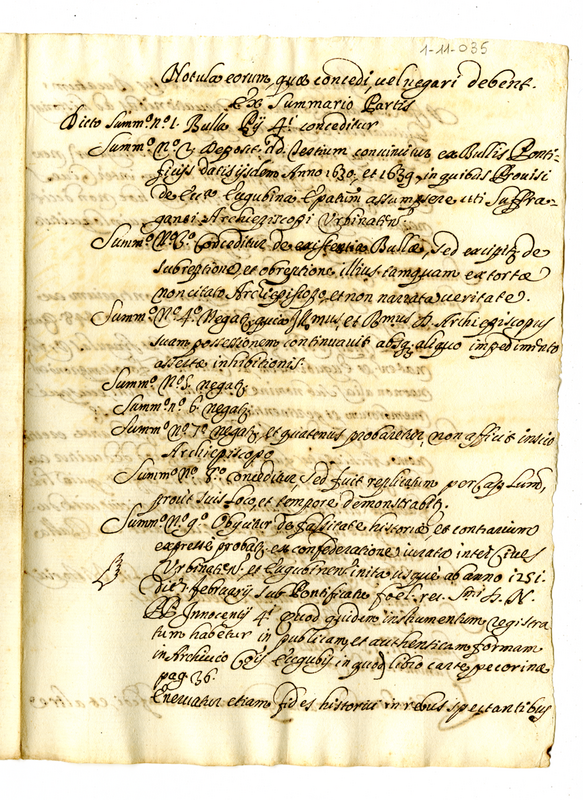 1-11-035
Notulæ eorum, quæ concedi, vel negari debent.
Ex Summario Partis
Dicto Summ.º nº 1. Bulla Pij 4.ti conceditur
Summ.º Nº 2. ad tertium convincitur ex Bullis Ponti-
ficijs datis ijsdem Anno 1630. et 1639. in quibus Provisi
de Eccª Eugubina Epatum assumpsere uti Suffra-
ganei Archiepiscopi Urbinaten.
Summ.º Nº 3.º Conceditur de existentia Bullæ, sed excipitr de
subreptione, et obreptione illius tamquam extortæ
non citato Archiepiscopo, et non narrata veritate.
Summ.º Nº 4.º Negatr quia Illmus et Rmus D. Archiepiscopus
suam possessionem continuavit absq. aliquo impedimento
assertæ inhibitionis.
Summ.º Nº 5. negatr
Summ.º nº 6. negatr
Summ.º nº 7.º negatr, et quatenus probaretur, non afficit inscio
Archiepiscopo
Summ.º Nº 8.º Conceditur sed fuit replicatum per
prout suis loco, et tempore demonstrabitr.
Summ.º nº 9.º Obijcitur de falsitate historiæ, et contrarium
expresse probatr ex confederatione iurata inter Cives
Urbinaten. et Eugubinen. inita usque ab anno 1251.
Die 7 februarij sub Pontificatu fœl. rec. Smi D. N.
PP Innocentij 4.ti quod quidem instrumentum registra
tum habetur in publicam, et authenticam formam
in Archivio Eugubij in quod) libro cartæ pecorinæ
pag 36.
Enervatur etiam fides historici in rebus spectantibus